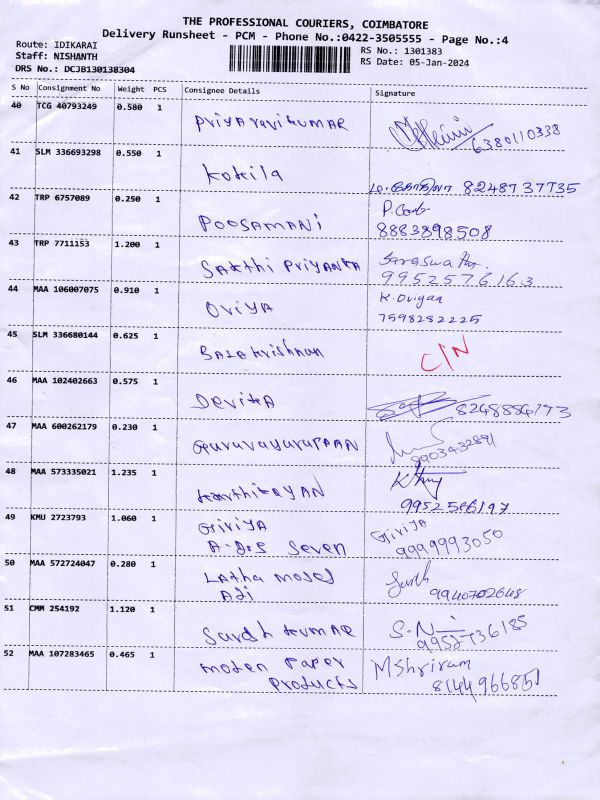 THE PROFESSIONAL COURIERS, COIMBATORE
Delivery Runsheet - PCM - Phone No.:0422-3505555 - Page No.:4
Route: IDIKARAI
Staff: NISHANTH
DRS No.: DCJB130138304
RS No.: 1301383
RS Date: 05-Jan-2024
S No Consignment No Weight PCS Consignee Details Signature
40 TCG 40793249 0.580 1 Priyaravikumar 6380110338
41 SLM 336693298 0.550 1 Kokila 8248737735
42 TRP 6757089 0.250 1 Poosamani 8883898508
43 TRP 7711153 1.200 1 Sakthi Priyanka Saraswathy
9952576163
44 MAA 106007075 0.910 1 Oviya K. Oviyaa
7598282225
45 SLM 336680144 0.625 1 Balakrishnan C/N
46 MAA 102402663 0.575 1 Devika 8248886173
47 MAA 600262179 0.230 1 Guruvayurappan 9903432891
48 MAA 573335021 1.235 1 Karthikayan
9952566197
49 KMU 2723793 1.060 1 Girija Girija
Seven 9999993050
50 MAA 572724047 0.280 1 Latha
9940702648
51 CMM 254192 1.120 1 Suresh Kumar S.N
52 MAA 107283465 0.465 1 Paper MShriram
Products 8144966851